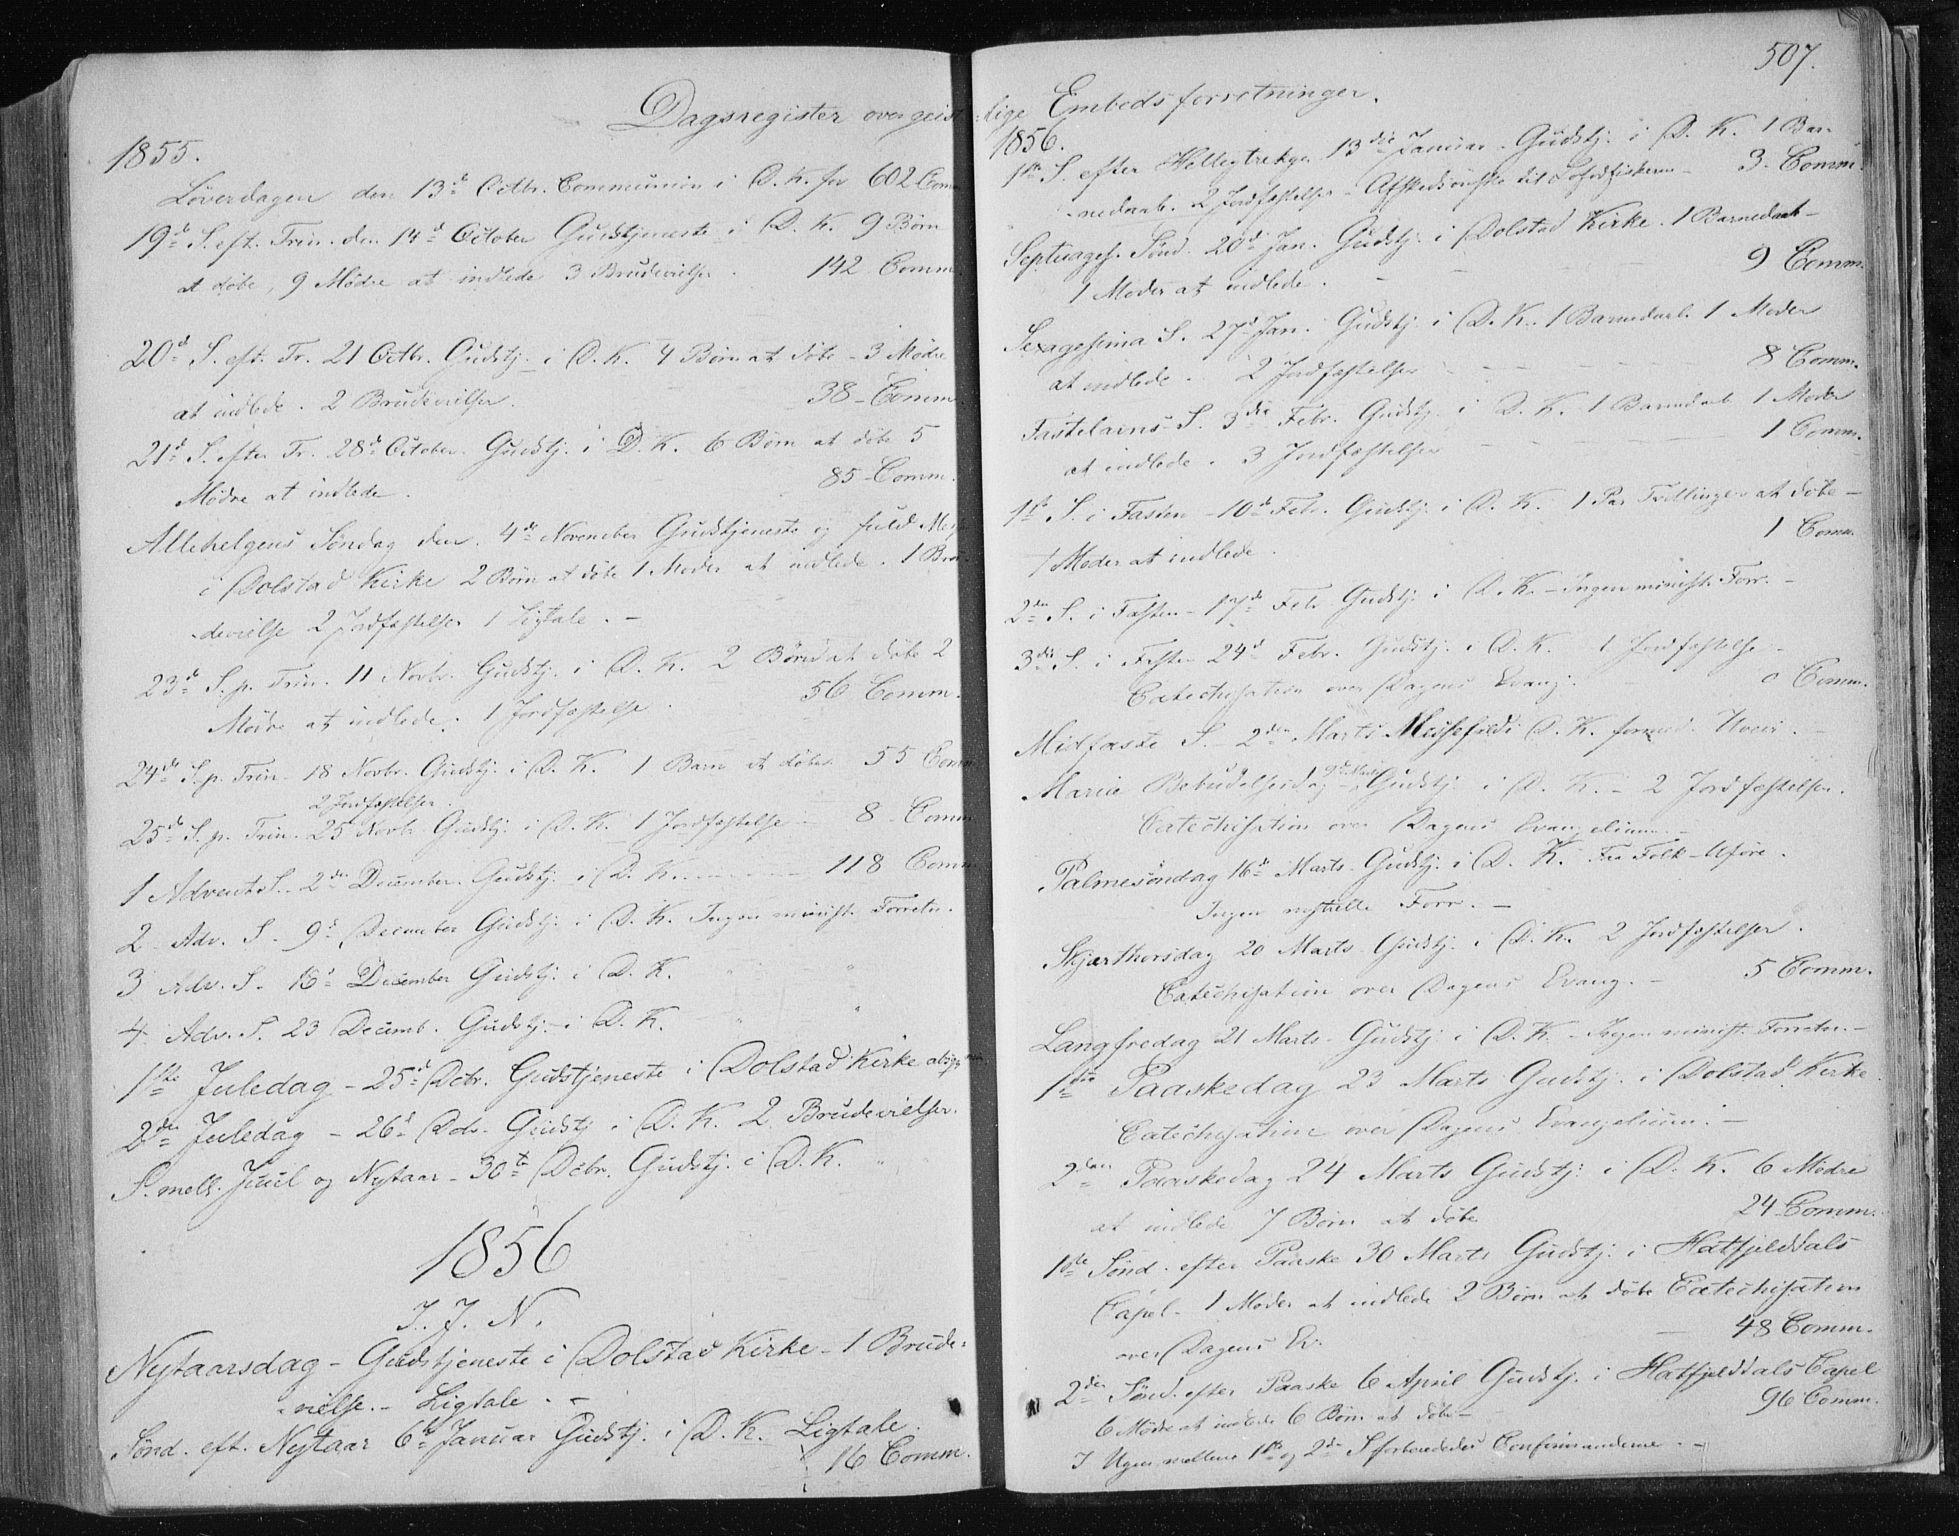 507.
Dagsregister over geistlige Embedsforretninger.
1855.
Løverdagen den 13de Octbr. Communion i D. K. for 602 Comm.
19de S. eft. Trin. den 14de October Gudstjeneste i D. K. 9 Børn
at døbe, 9 Mødre at indlede 3 Brudevielser. 142 Comm.
20de S. eft. Tr. 21 Octbr. Gudstj. i D. K. 4 Børn at døbe - 3 Mødre
at indlede. 2 Brudevielser. 38 - Comm.
21de S. efter Tr. 28de October. Gudstj. i D. K. 6 Børn at døbe 5
Mødre at indlede. 85 - Comm.
Allehelgens Søndag den 4de November Gudstjeneste og fuld Messe
i Dolstad Kirke 2 Børn at døbe 1 Moder at indlede. 1 Bru-
devielse 2 Jordfæstelser 1 Ligtale. -
23de S. p. Trin. 11 Novbr. Gudstj. i D. K. 2 Børn at døbe 2
Mødre at indlede. 1 Jordfæstelse. 56 Comm.
24de S. p. Trin. 18 Novbr. Gudstj. i D. K. 1 Barn at døbe 55 Comm
2 Jordfæstelser.
25de S. p. Trin. 25 Novbr. Gudstj. i D. K. 1 Jordfæstelse - 8 - Comm
1 Advents S. 2den December. Gudstj. i D. K. 118 Comm
2 Adv. S. 9de December Gudstj. i D. K. Ingen minist. Forretn.
3 Adv. S. 16de December Gudstj. i D. K. " "
4 Adv. S. 23 Decemb. Gudstj. i D. K. " "
1ste Juledag - 25de Dcbr. Gudstjeneste i Dolstad Kirke
2den Juledag - 26de Dcbr. Gudstj i D. K. 2 Brudevielser.
S. mell. Juul og Nytaar - 30te Dcbr. Gudstj. i D. K. "
1856
I. J. N.
Nytaarsdag - Gudstjeneste i Dolstad Kirke - 1 Brude-
vielse. - Ligtale. -
Sønd. eft. Nytaar 6te Januar Gudstj. i D. K. Ligtale.
16 Comm.
1856.
1ste S. efter Helligtrekgr. 13die Januar. Gudstj. i D. K. 1 Bar-
nedaab. 2 Jordfæstelser - Afskedsønske til Lofodfiskerne - 3 - Comm.
Septuages. Sønd. 20de Jan. Gudstj. i Dolstad Kirke. 1 Barnedaab -
1 Moder at indlede. 9 Comm.
Sexagesima S. 27de Jan. Gudstj. i D. K. 1 Barnedaab 1 Moder
at indlede. 2 Jordfæstelser 8 Comm.
Fastelavns S. 3die Febr. Gudstj. i D. K. 1 Barnedaab 1 Moder
at indlede. 3 Jordfæstelser 1 Comm.
1ste S. i Fasten - 10de Febr. Gudstj. i D. K. 1 Par Tvillinger at døbe -
1 Moder at indlede. 1 Comm.
2den S. i Fasten - 17de Febr. Gudstj. i D. K. - Ingen minist. Forr. -
3die S. i Fasten 24de Febr. Gudstj. i D. K. 1 Jordfæstelse -
Catechisation over Dagens Evang: 0 Comm.
Midfaste S. - 2den Marts Messefald i D. K. formed. Uveir. -
Mariæ Bebudelsesdag - 9de Marts Gudstj. i D. K. - 2 Jordfæstelser.
Catechisation over Dagens Evangelium. -
Palmesøndag 16de Marts. Gudstj. i D. K. Faa Folk - Uføre.
Ingen Forr. -
Skjærthorsdag 20 Marts Gudstj. i D. K. 2 Jordfæstelser.
Catechisation over Dagens Evang. - 5 Comm.
Langfredag 21 Marts Gudstj. i D. K. - Ingen minist. Forretn. -
1ste Paaskedag 23 Marts Gudstj. i Dolstad Kirke
Catechisation over Dagens Evangelium. -
2den Paaskedag 24 Marts Gudstj. i D. K. 6 Mødre
at indlede 7 Børn at døbe 24 Comm.
1ste Sønd. efter Paaske 30 Marts Gudstj. i Hatfjelddals
Capel - 1 Moder at indlede 2 Børn at døbe Catechisation
over Dagens Ev. 48 Comm.
2den Sønd. efter Paaske 6 April Gudstj. i Hatfjelddals Capel
6 Mødre at indlede 6 Børn at døbe - 96 Comm.
I Ugen mellem 1ste og 2den S. forberededes Confirmanderne. -